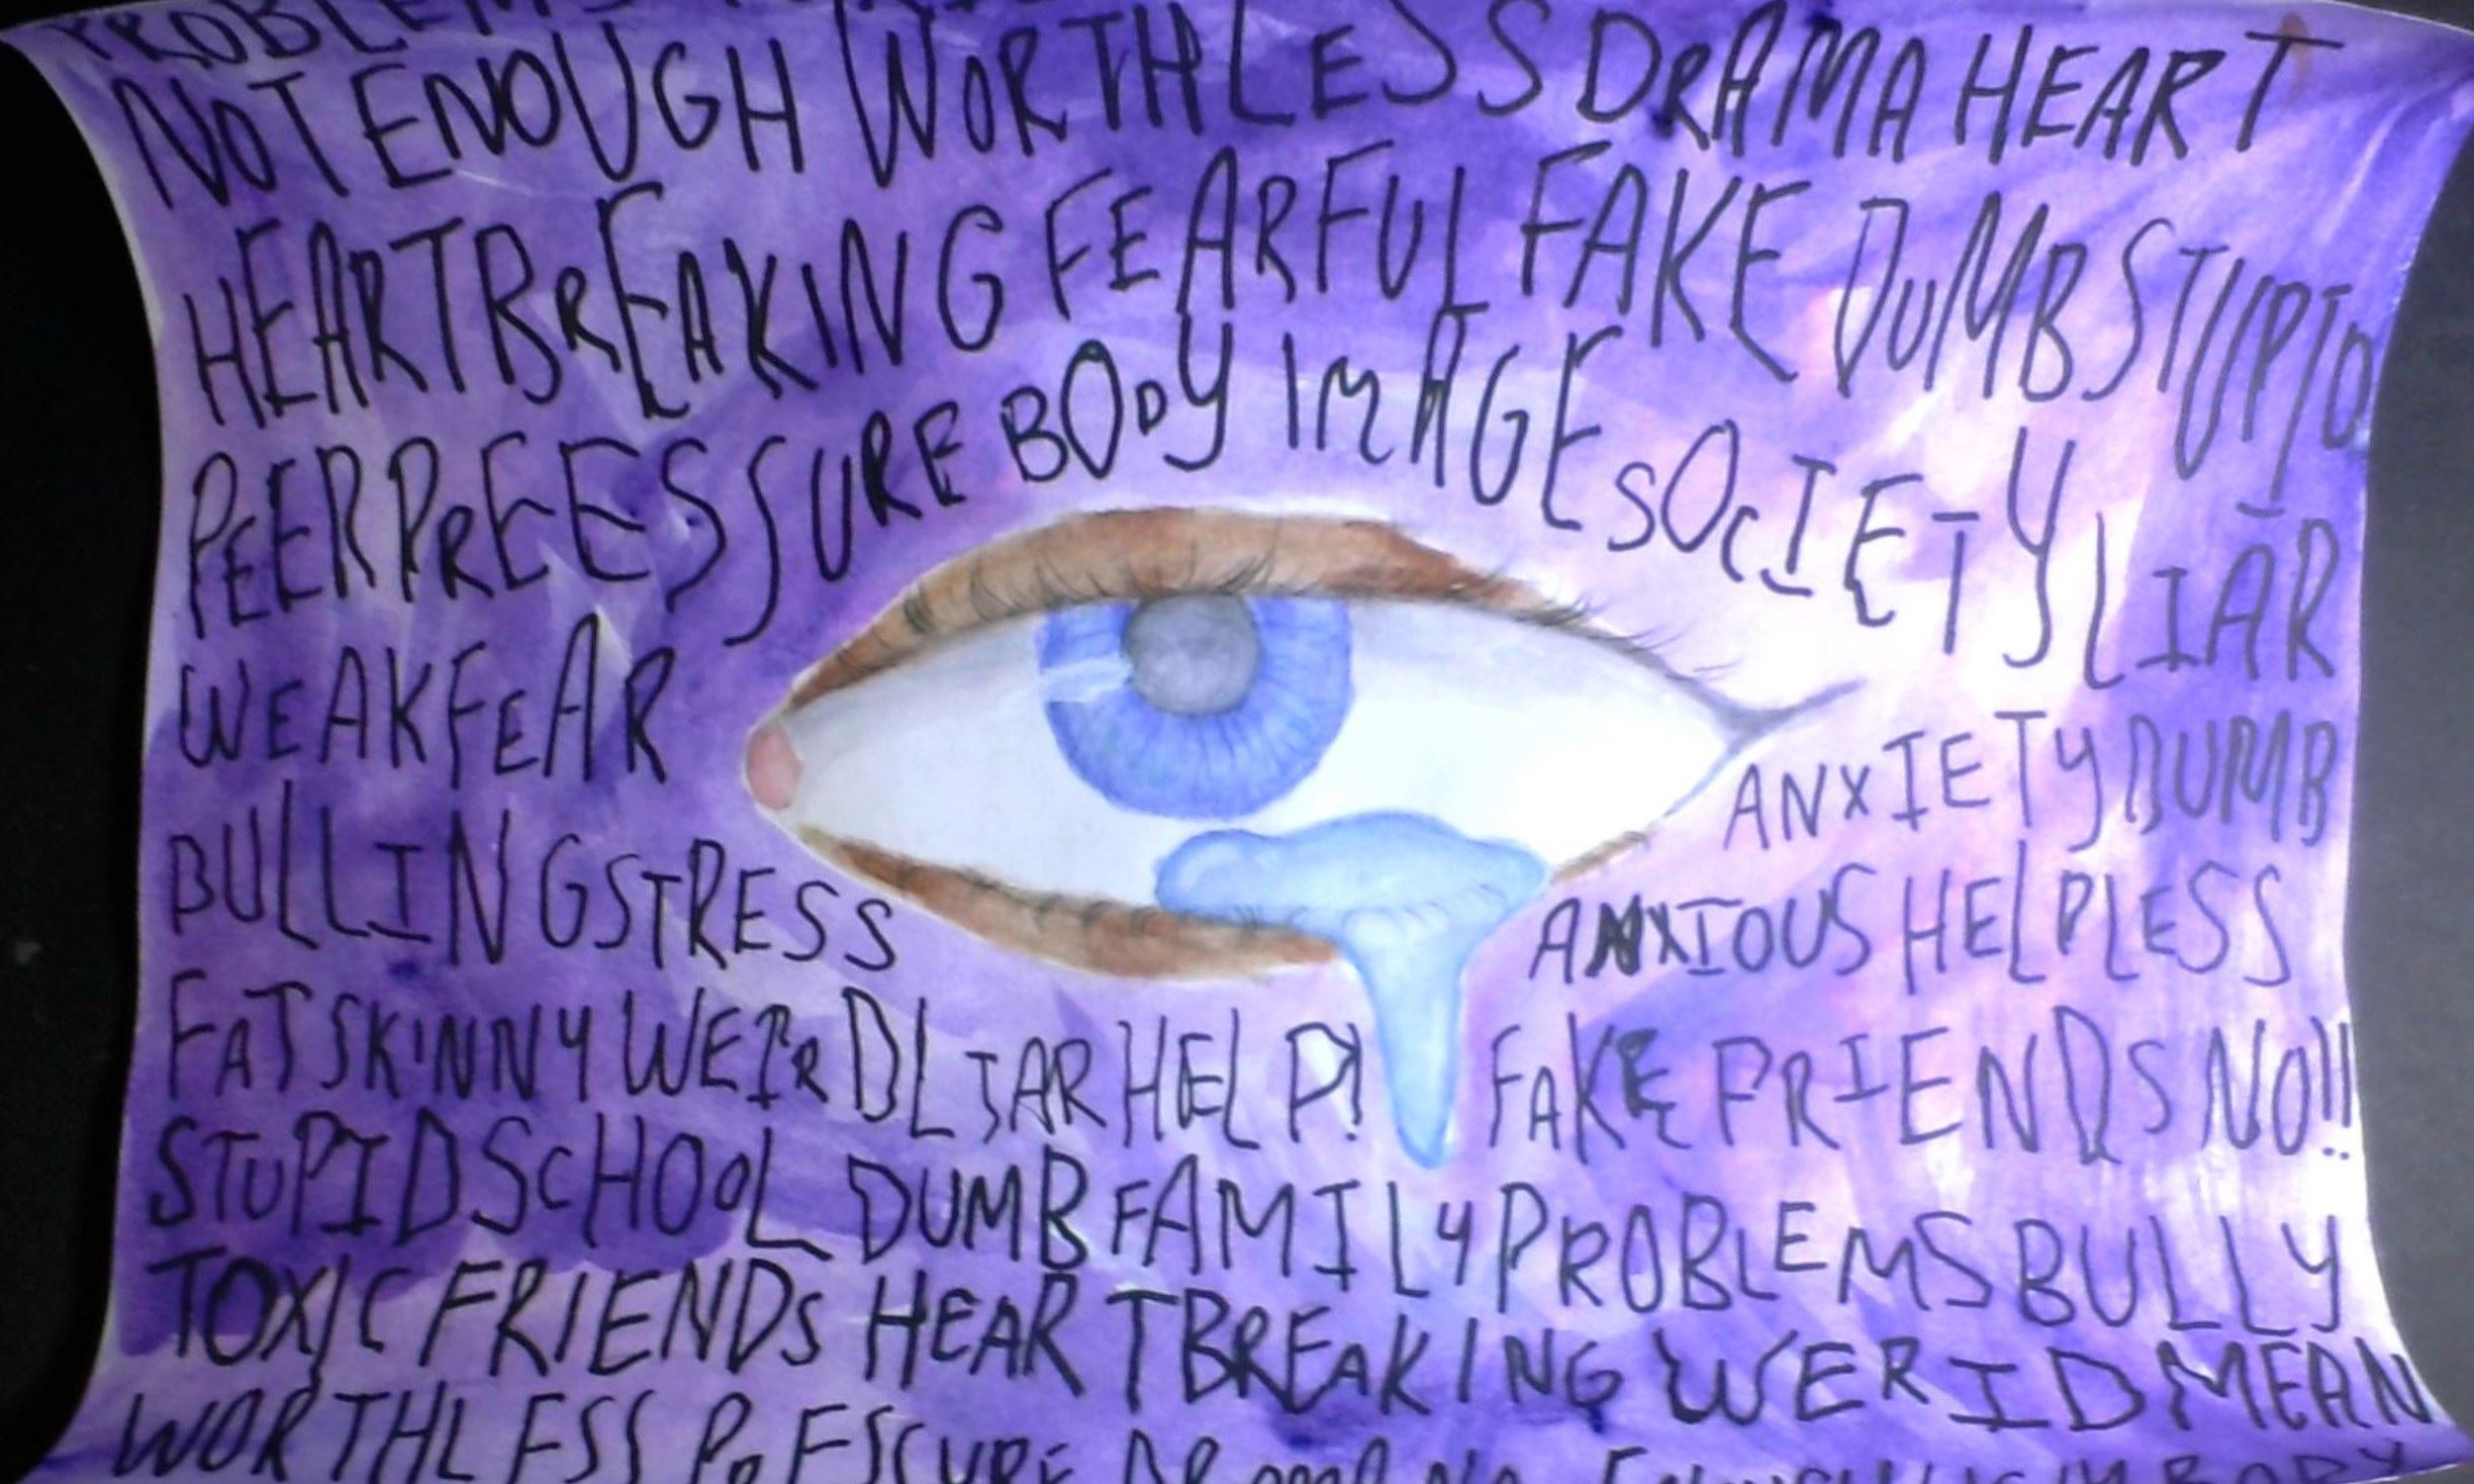 PROBLEMS
NOT ENOUGH WORTHLESS DRAMA HEART
HEARTBREAKING FEARFUL FAKE DUMB STUPID
PEER PREESSURE BODY IMAGE SOCIETY LIAR
WEAK FEAR
ANXIETY DUMB
BULLING STRESS
ANXIOUS HELPLESS
FAT SKINNY WEIRD LIAR HELP! FAKE FRIENDS NO!!
STUPID SCHOOL DUMB FAMILY PROBLEMS BULLY
TOXIC FRIENDS HEARTBREAKING WERID MEAN
WORTHLESS BODY